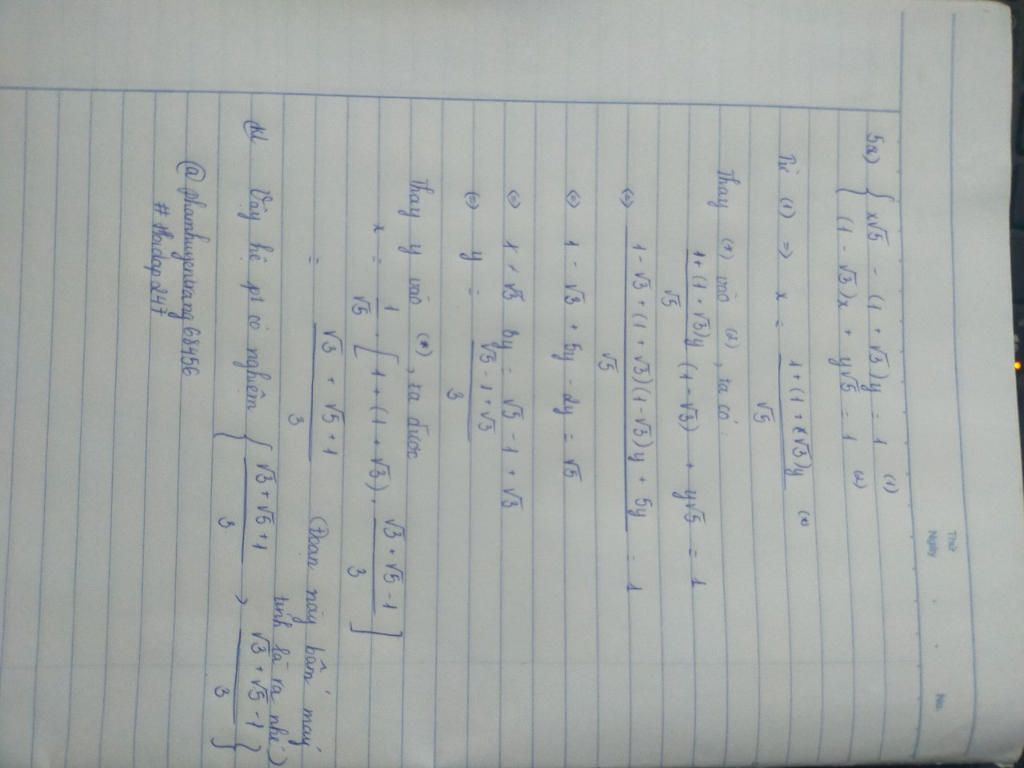 Thứ
Ngày
No.
5a) { x√5 - (1 + √3)y = 1 (1)
(1 - √3)x + y√5 = 1 (2)
Từ (1) => x = (1 + (1 + √3)y)/√5 (*)
Thay (*) vào (2), ta có:
(1 + (1 + √3)y)/√5 (1 - √3) + y√5 = 1
<=> (1 - √3 + (1 + √3)(1 - √3)y + 5y)/√5 = 1
<=> 1 - √3 + 5y - 2y = √5
<=> 3y = √5 - 1 + √3
<=> y = (√3 - 1 + √5)/3
Thay y vào (*), ta được
x = 1/√5 [1 + (1 + √3) . (√3 + √5 - 1)/3]
= (√3 + √5 + 1)/3 (Đoạn này bấm máy
tính là ra nhé)
Kl Vậy hệ pt có nghiệm { (√3 + √5 + 1)/3 ; (√3 + √5 - 1)/3 }
@phamhuyentrang68456
#hoidap247